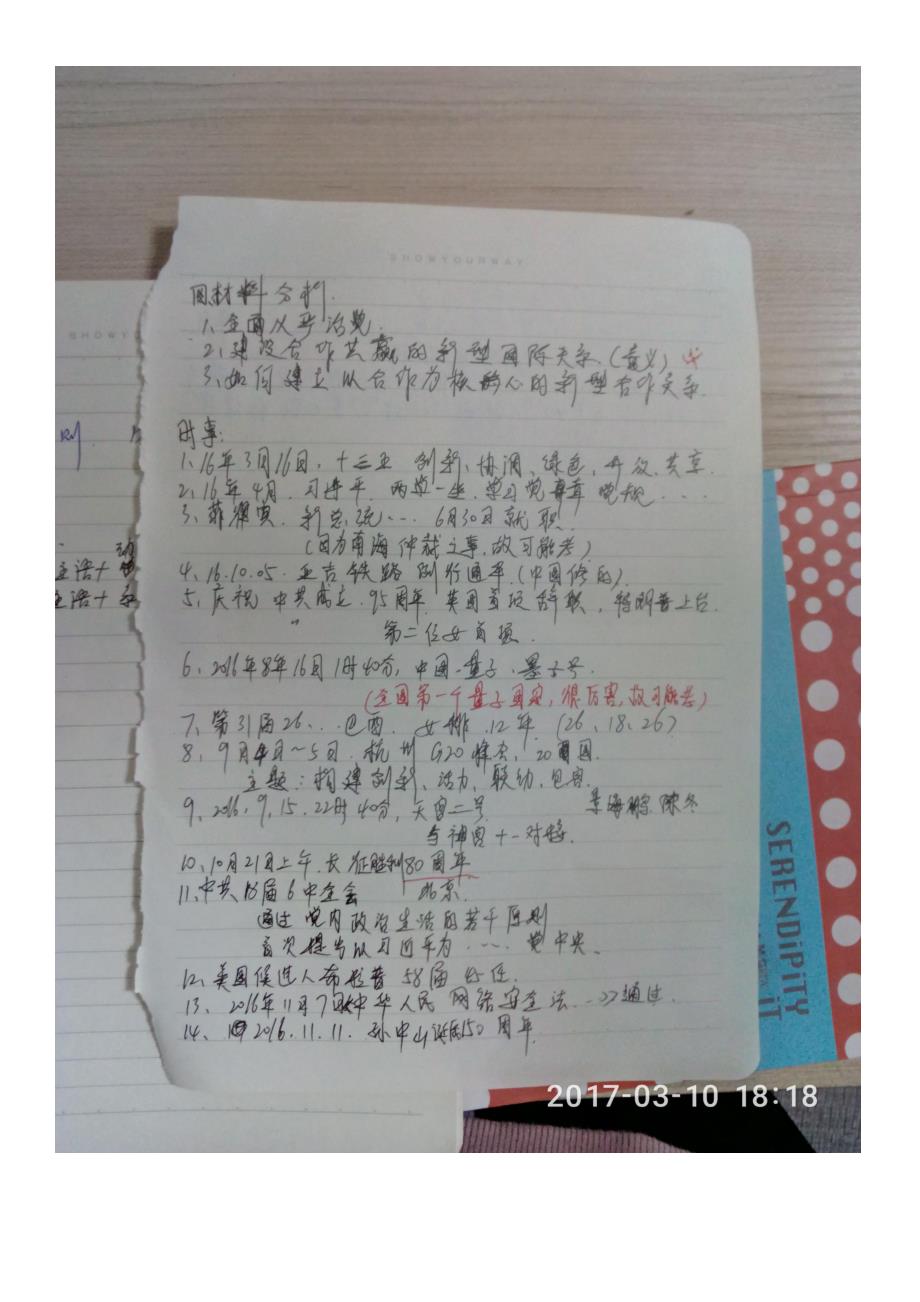 SHOWYOURWAY
因材料分析.
1、全面从严治党.
2、建设合作共赢的新型国际关系.(意义)
3、如何建立以合作为核心的新型合作关系.
时事:
1、16年3月16日,十三五 创新、协调、绿色,开放,共享.
2、16年4月.习近平.两学一坐.学习党章 党规....
3、菲律宾.新总统... 6月30日就职.
(因为南海仲裁之事,故可能考)
4、16.10.05.亚吉铁路 例行通车.(中国修的).
5、庆祝 中共成立.95周年 英国首项辞职,特朗普上台.
第二位女首项.
6、2016年8年16日1时40分,中国.量子.墨子号.
(全国第一个量子 很厉害,故可能考)
7、第31届26...巴西.女排.12年.(26、18、26)
8、9月4日~5日.杭州 G20峰会,20国
主题:构建创新、活力、联动,包容.
9、2016,9,15.22时40分,天宫二号 景海鹏 陈冬
与神舟十一对接.
10、10月21日上午.长征胜利80周年
11、中共18届6中全会 北京.
通过党内政治生活的若干原则
首次提出以习近平为....党中央、
12、美国候选人 58届 45任.
13、2016年11月7日 中华人民 网络安全法...>>通过.
14、2016.11.11.孙中山诞辰150周年.
SHOWYO
主语+
主语+
SERENDiPiTY
iT
2017-03-10 18:18